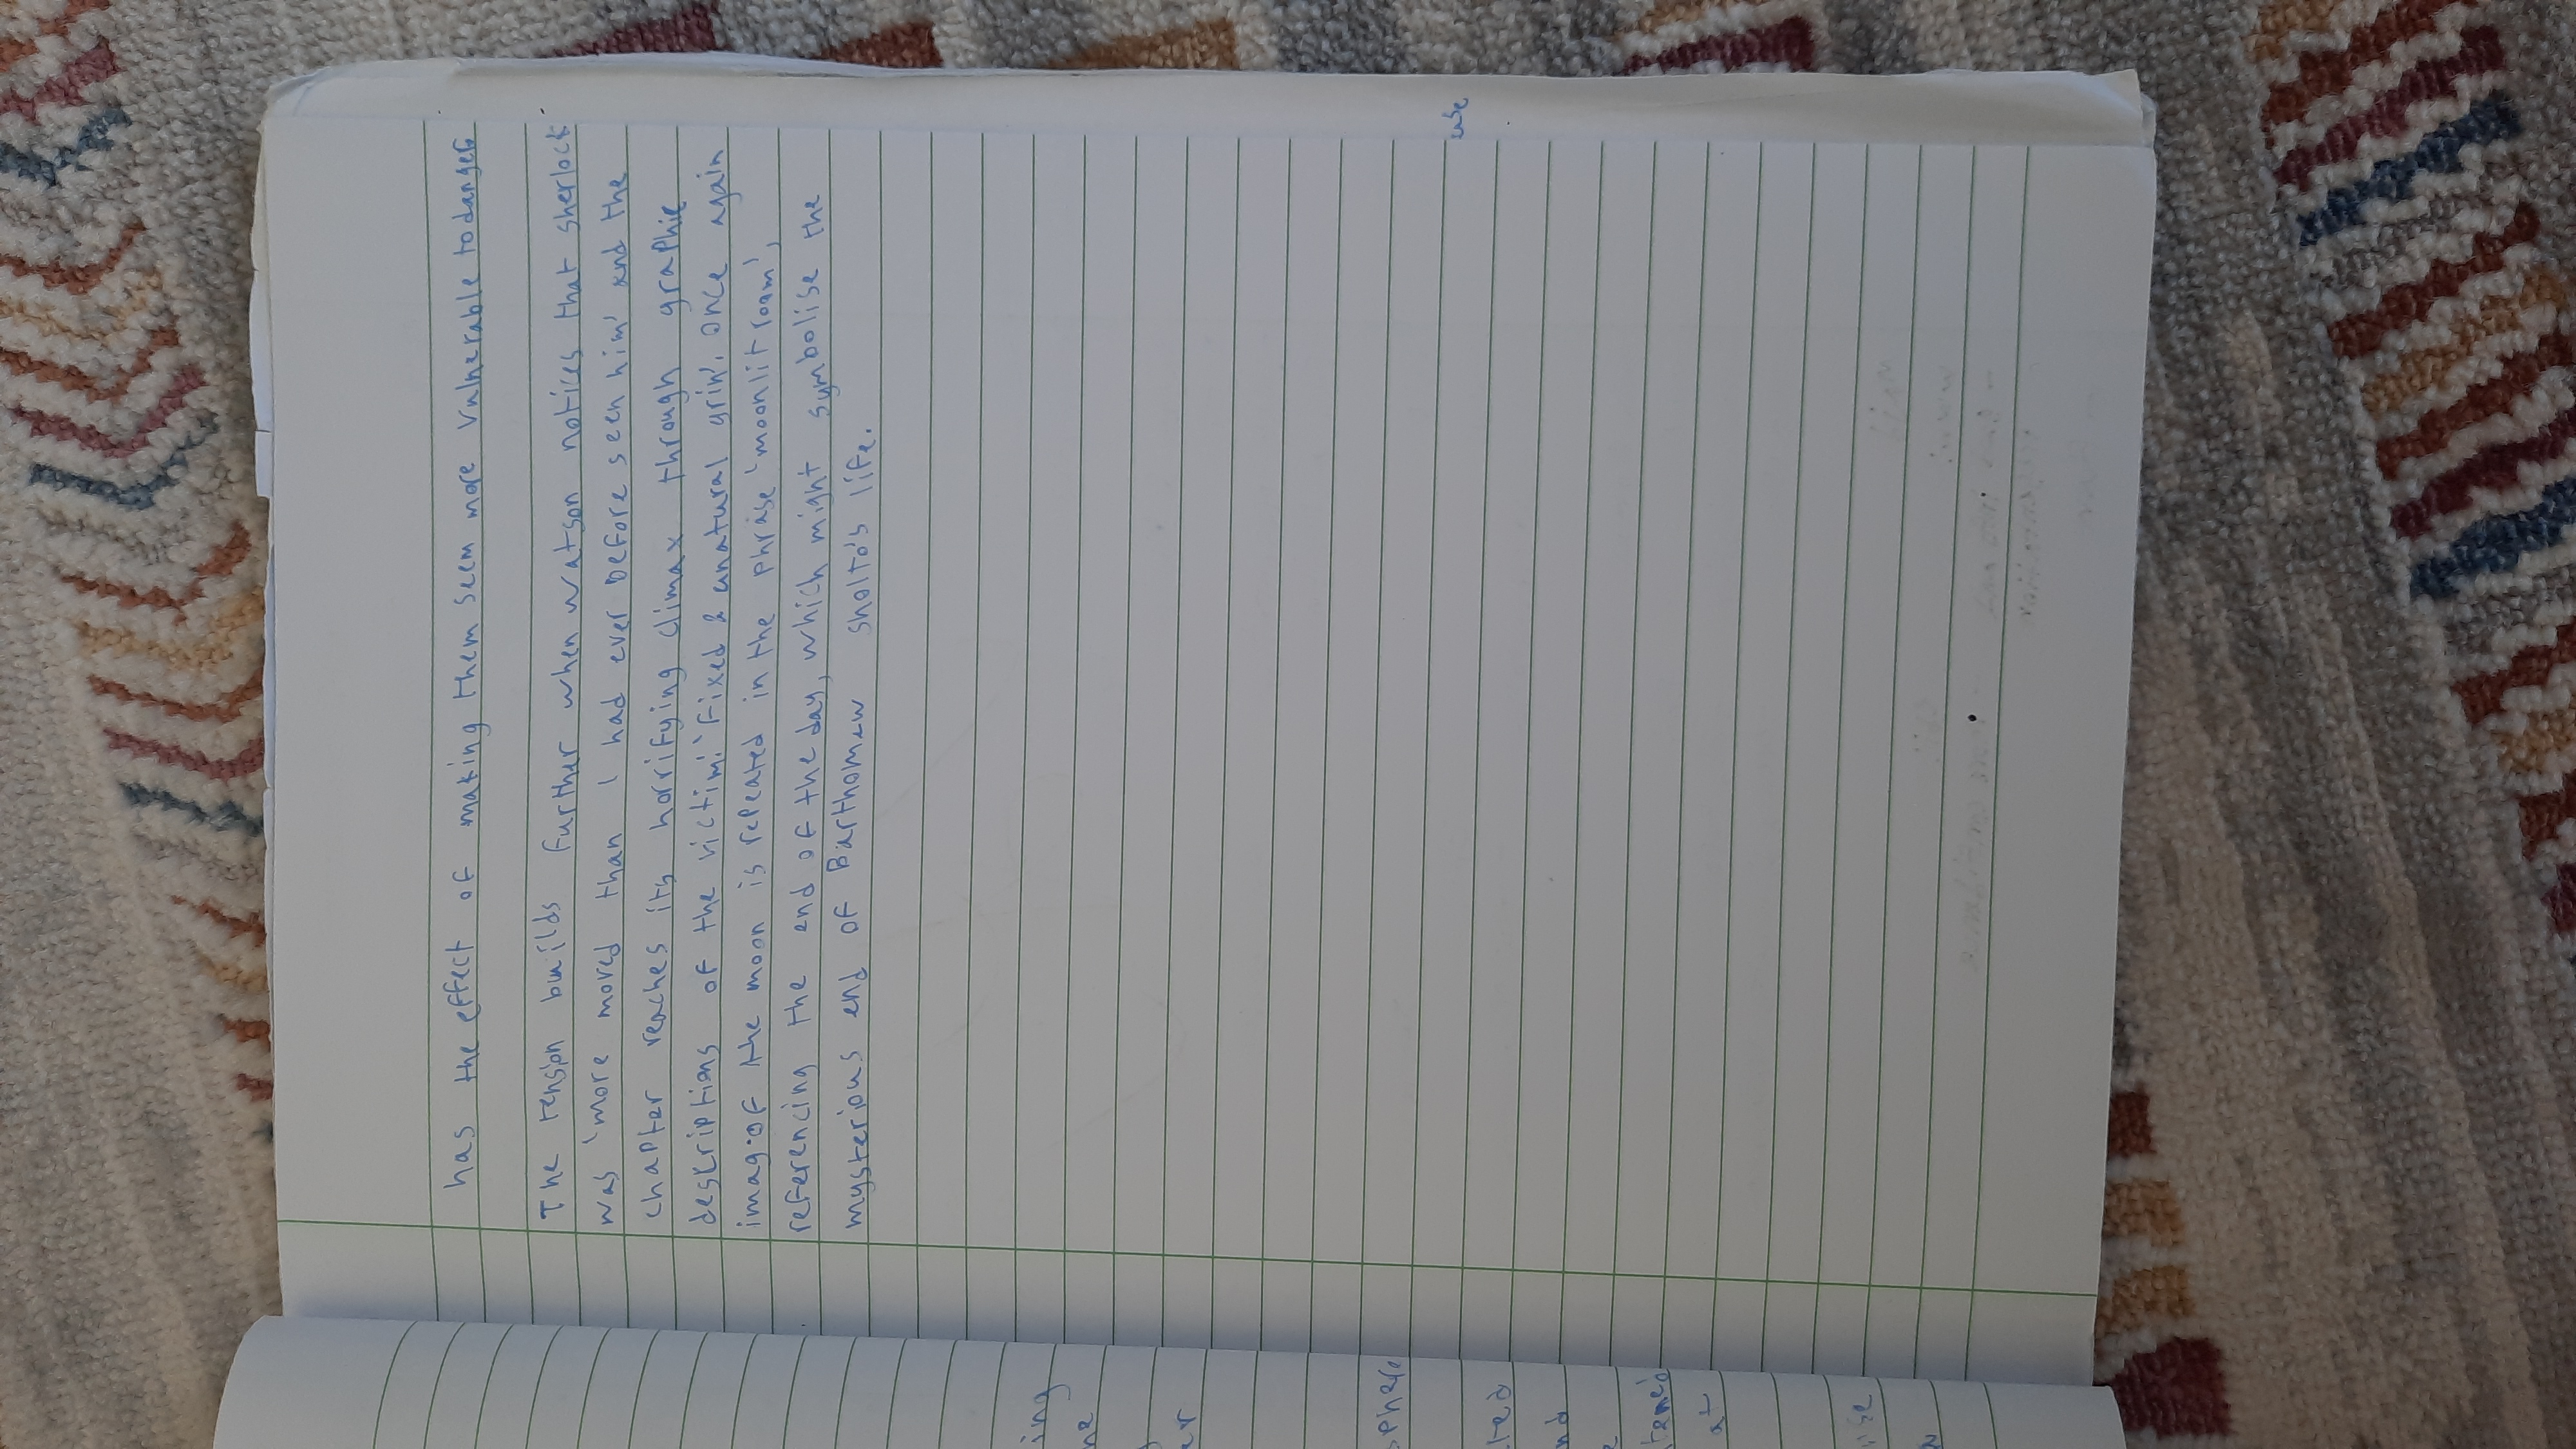 has the effect of making them seem more vulnerable to danger.
The tension builds further when watson notices that sherlock
was 'more moved than I had ever before seen him' and the
chapter reaches its horrifying climax through graphic
descriptions of the victim: 'fixed & unatural grin'. Once again
imag of the moon is repeated in the phrase 'moonlit room',
referencing the end of the day, which might symbolise the
mysterious end of Barthomew Sholto's life.
ing
er
sphere
nd
at